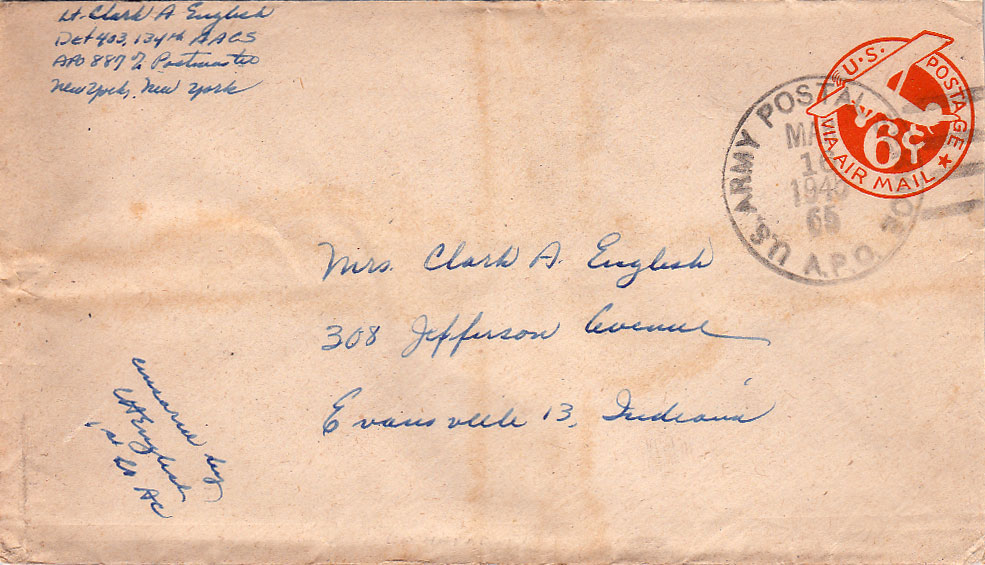 Lt. Clark A English
Det 403, 134th AACS
APO 887 % Postmaster
New York, New York
U.S. POSTAGE
VIA AIR MAIL
6¢
U.S. ARMY POSTAL
A.P.O.
16
Mrs. Clark A. English
308 Jefferson Avenue
Evansville 13, Indiana
censored by
CA English
1st Lt AC